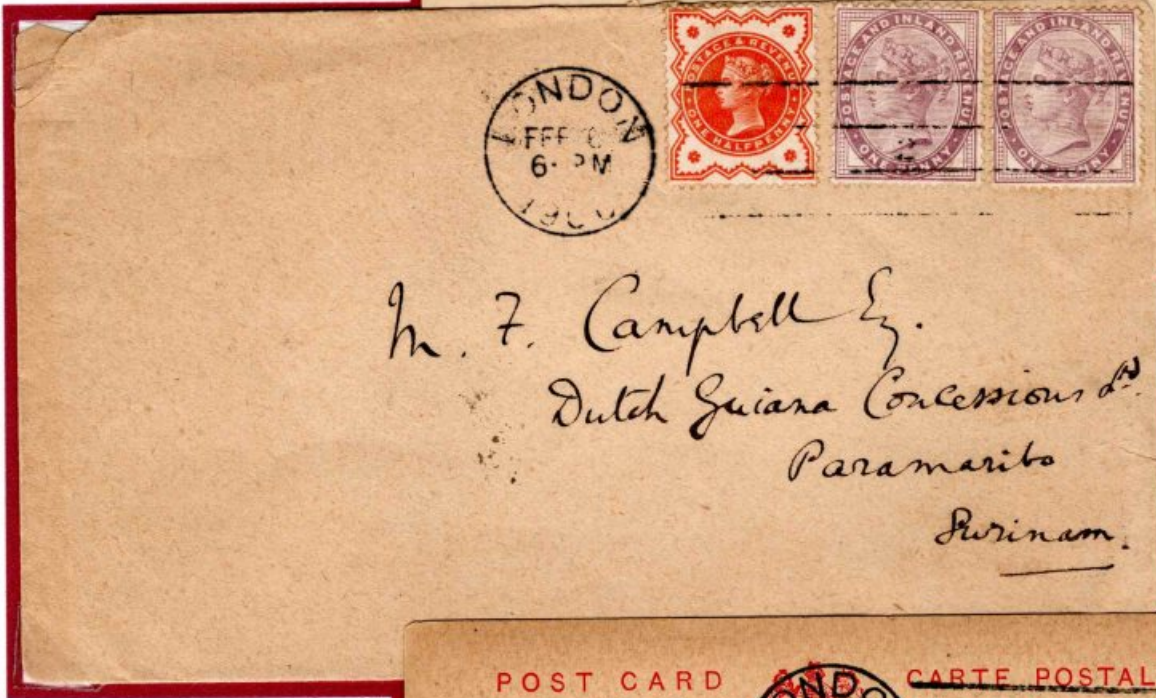 LONDON
FEB 6
6 PM
1900
POSTAGE & REVENUE
ONE HALFPENNY
POSTAGE AND INLAND REVENUE
ONE PENNY
POSTAGE AND INLAND REVENUE
ONE PENNY
M. F. Campbell Esq.
Dutch Guiana Concessions Ld.
Paramaribo
Surinam.
POST CARD CARTE POSTAL
LONDO